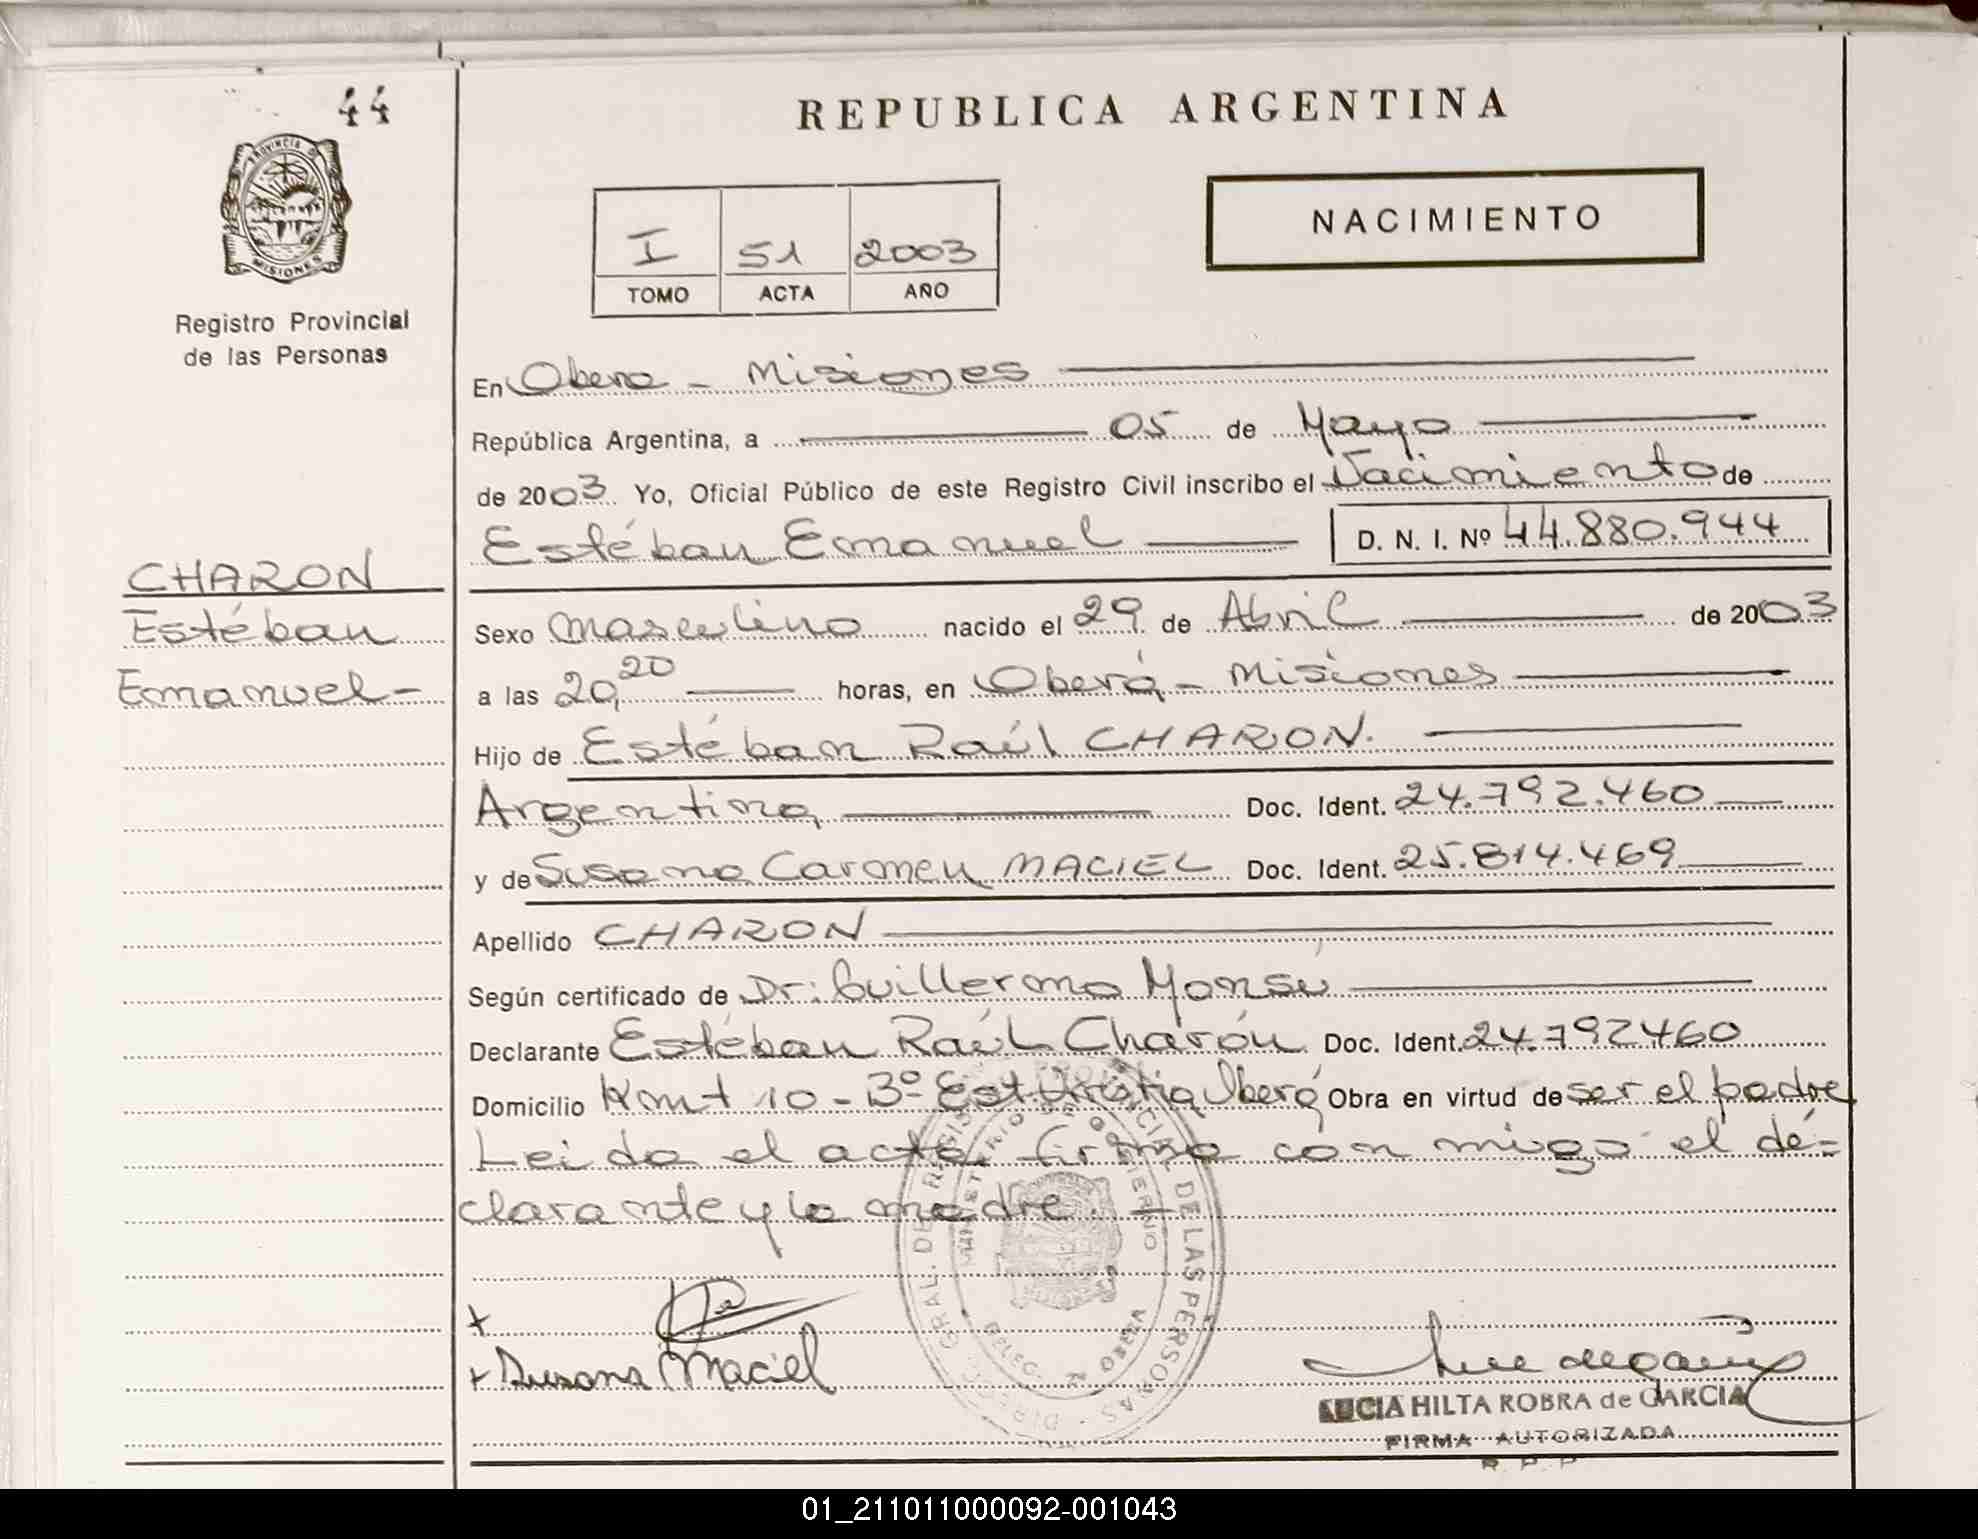 44
REPUBLICA ARGENTINA
PROVINCIA DE
MISIONES
Registro Provincial
de las Personas
I 51 2003
TOMO ACTA AÑO
NACIMIENTO
En Obera - Misiones
República Argentina, a 05 de Mayo
de 2003 Yo, Oficial Público de este Registro Civil inscribo el Nacimiento de
Estéban Emanuel D. N. I. Nº 44.880.944
CHARON
Estéban
Emanuel-
Sexo masculino nacido el 29 de Abril de 2003
a las 20,20 horas, en Oberá - Misiones
Hijo de Estéban Raúl CHARON.
Argentina, Doc. Ident. 24.792.460
y de Susana Carmen MACIEL Doc. Ident. 25.814.469
Apellido CHARON
Según certificado de Dr: Guillermo Monsú
Declarante Estéban Raúl Charón Doc. Ident. 24.792460
Domicilio Kmt 10 - Bº Est. Oberá Obra en virtud de ser el padre
Leida el acta, firma con migo el dé=
clarante y la madre. -
Susana Maciel
LUCIA HILTA ROBRA de GARCIA
FIRMA AUTORIZADA
R. P. P
01_211011000092-001043